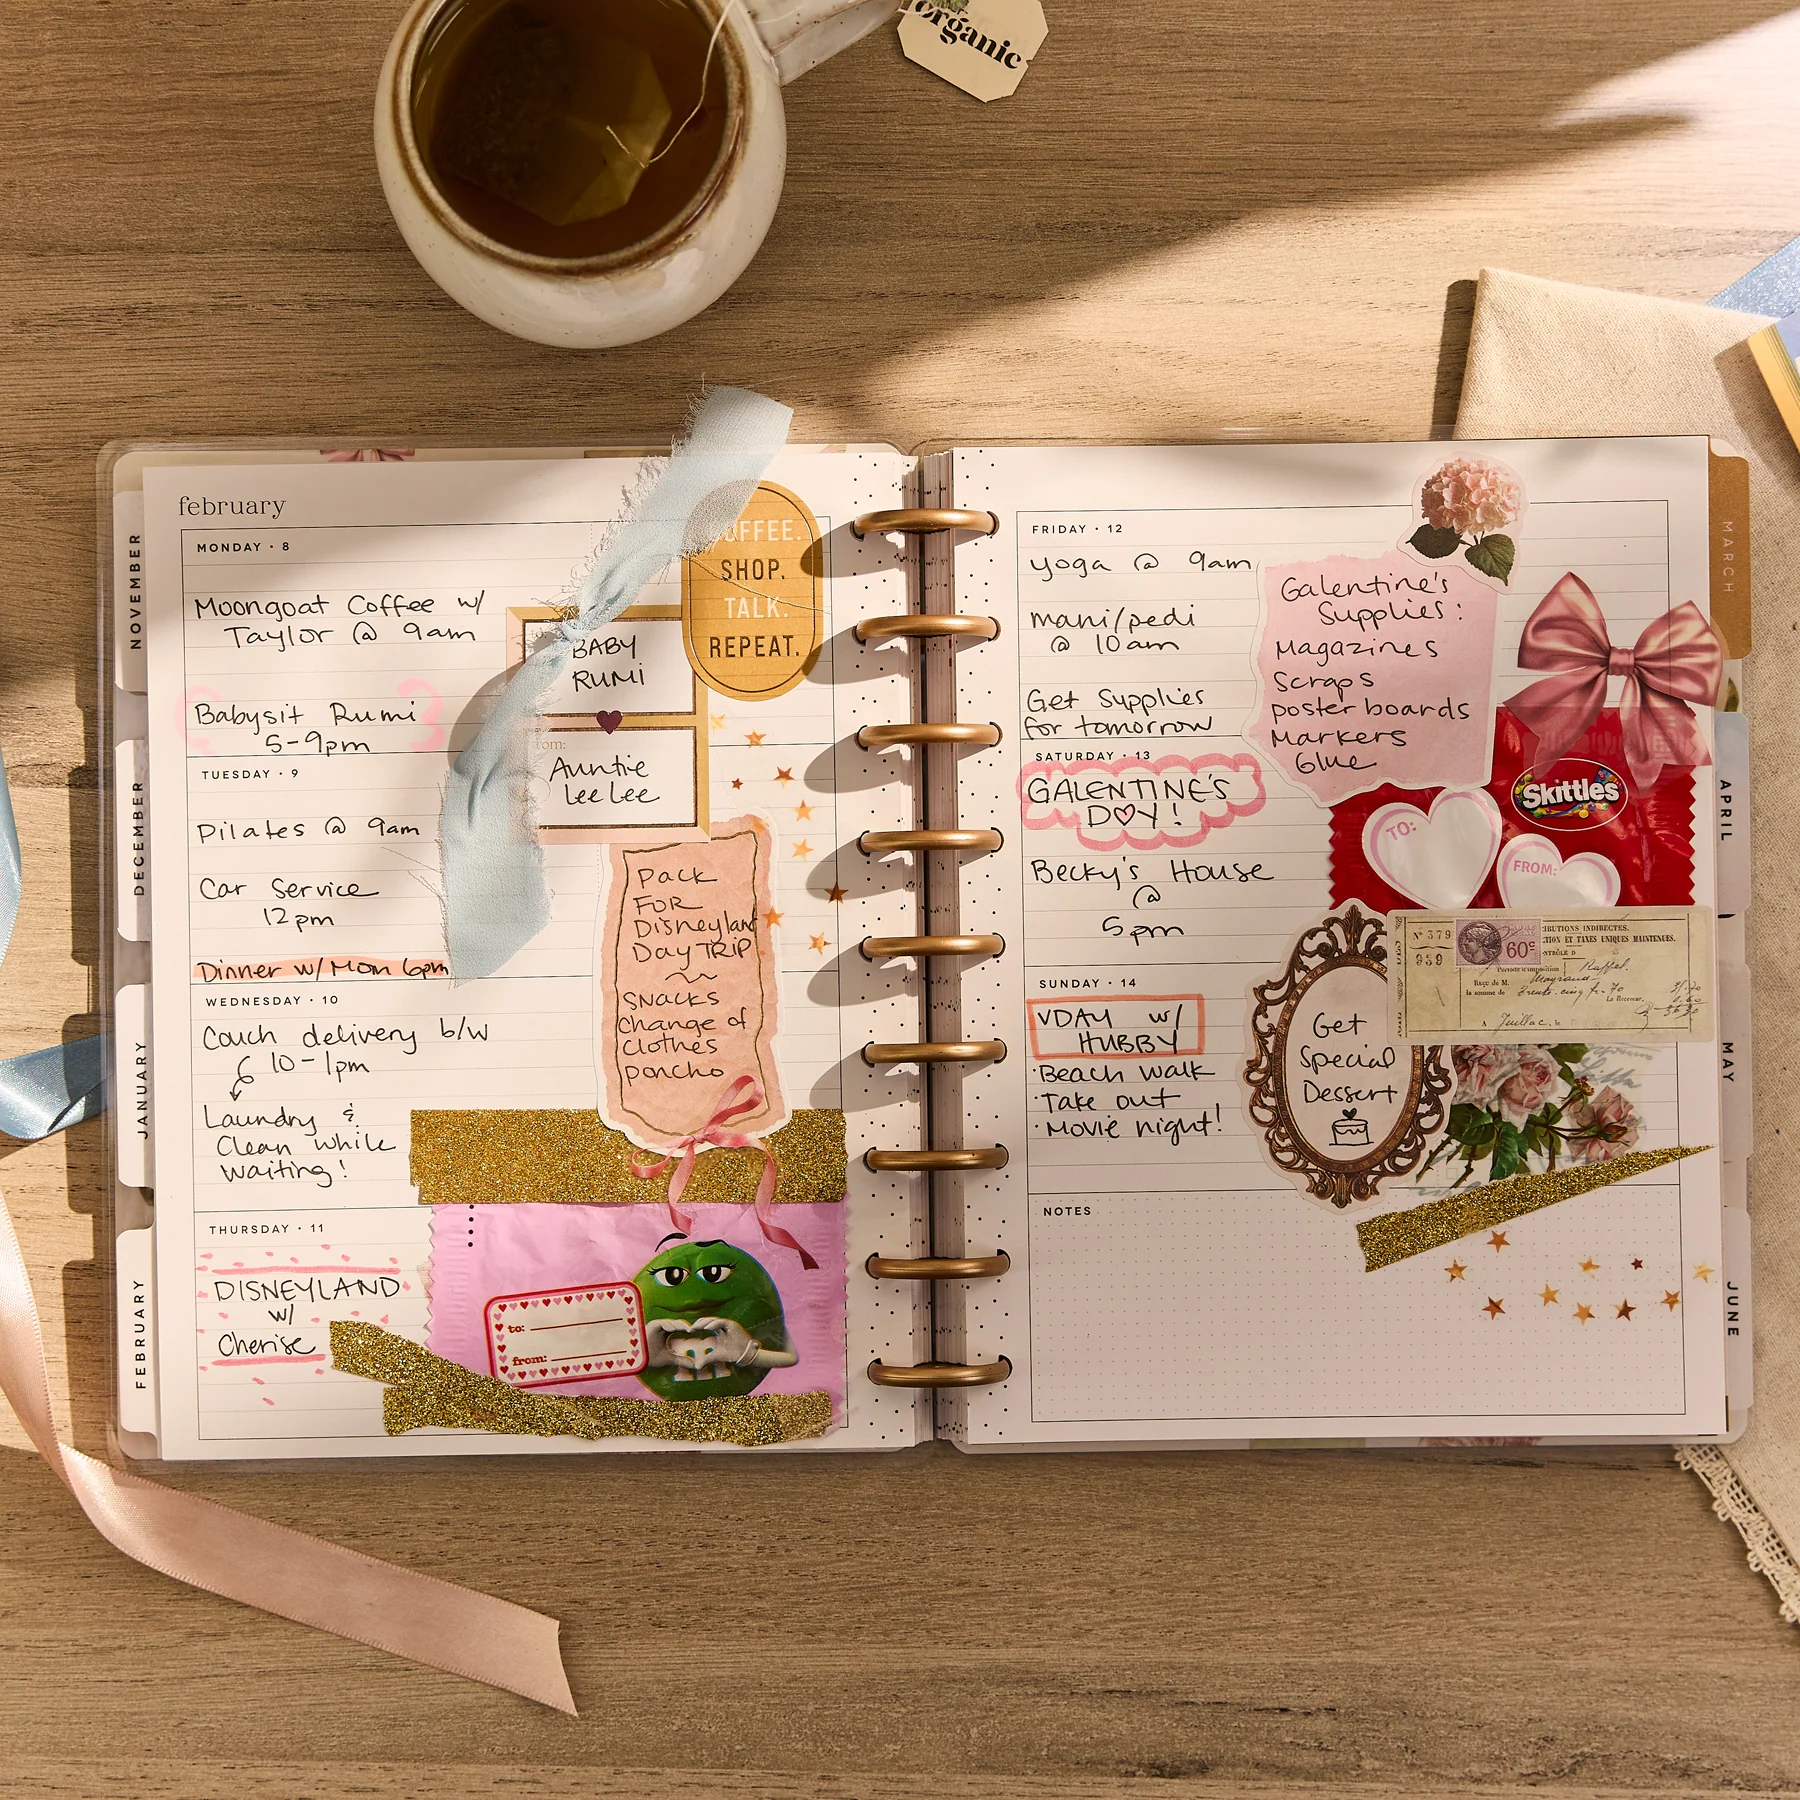 organic
NOVEMBER
DECEMBER
JANUARY
FEBRUARY
february
MONDAY · 8
Moongoat Coffee w/
Taylor @ 9am
Babysit Rumi
5-9pm
TUESDAY · 9
Pilates @ 9am
Car Service
12pm
Dinner w/ Mom 6pm
WEDNESDAY · 10
Couch delivery b/w
10-1pm
Laundry &
Clean while
waiting!
THURSDAY · 11
DISNEYLAND
w/
Cherise
COFFEE.
SHOP.
TALK.
REPEAT.
BABY
RUMI
from:
Auntie
Lee Lee
Pack
FOR
Disneyland
Day TRIP
SNACKS
Change of
Clothes
poncho
to:
from:
FRIDAY · 12
yoga @ 9am
mani/pedi
@ 10am
Get Supplies
for tomorrow
SATURDAY · 13
GALENTINE'S
DAY!
Becky's House
@
5pm
SUNDAY · 14
VDAY w/
HUBBY
·Beach walk
·Take out
·Movie night!
NOTES
Galentine's
Supplies:
Magazines
Scraps
poster boards
Markers
Glue
Skittles
TO:
FROM:
Nº 379
939
60c
IBUTIONS INDIRECTES.
CTION ET TAXES UNIQUES MAINTENUES.
Reçu de M.
la somme de
Le Receveur,
Get
Special
Dessert
MARCH
APRIL
MAY
JUNE